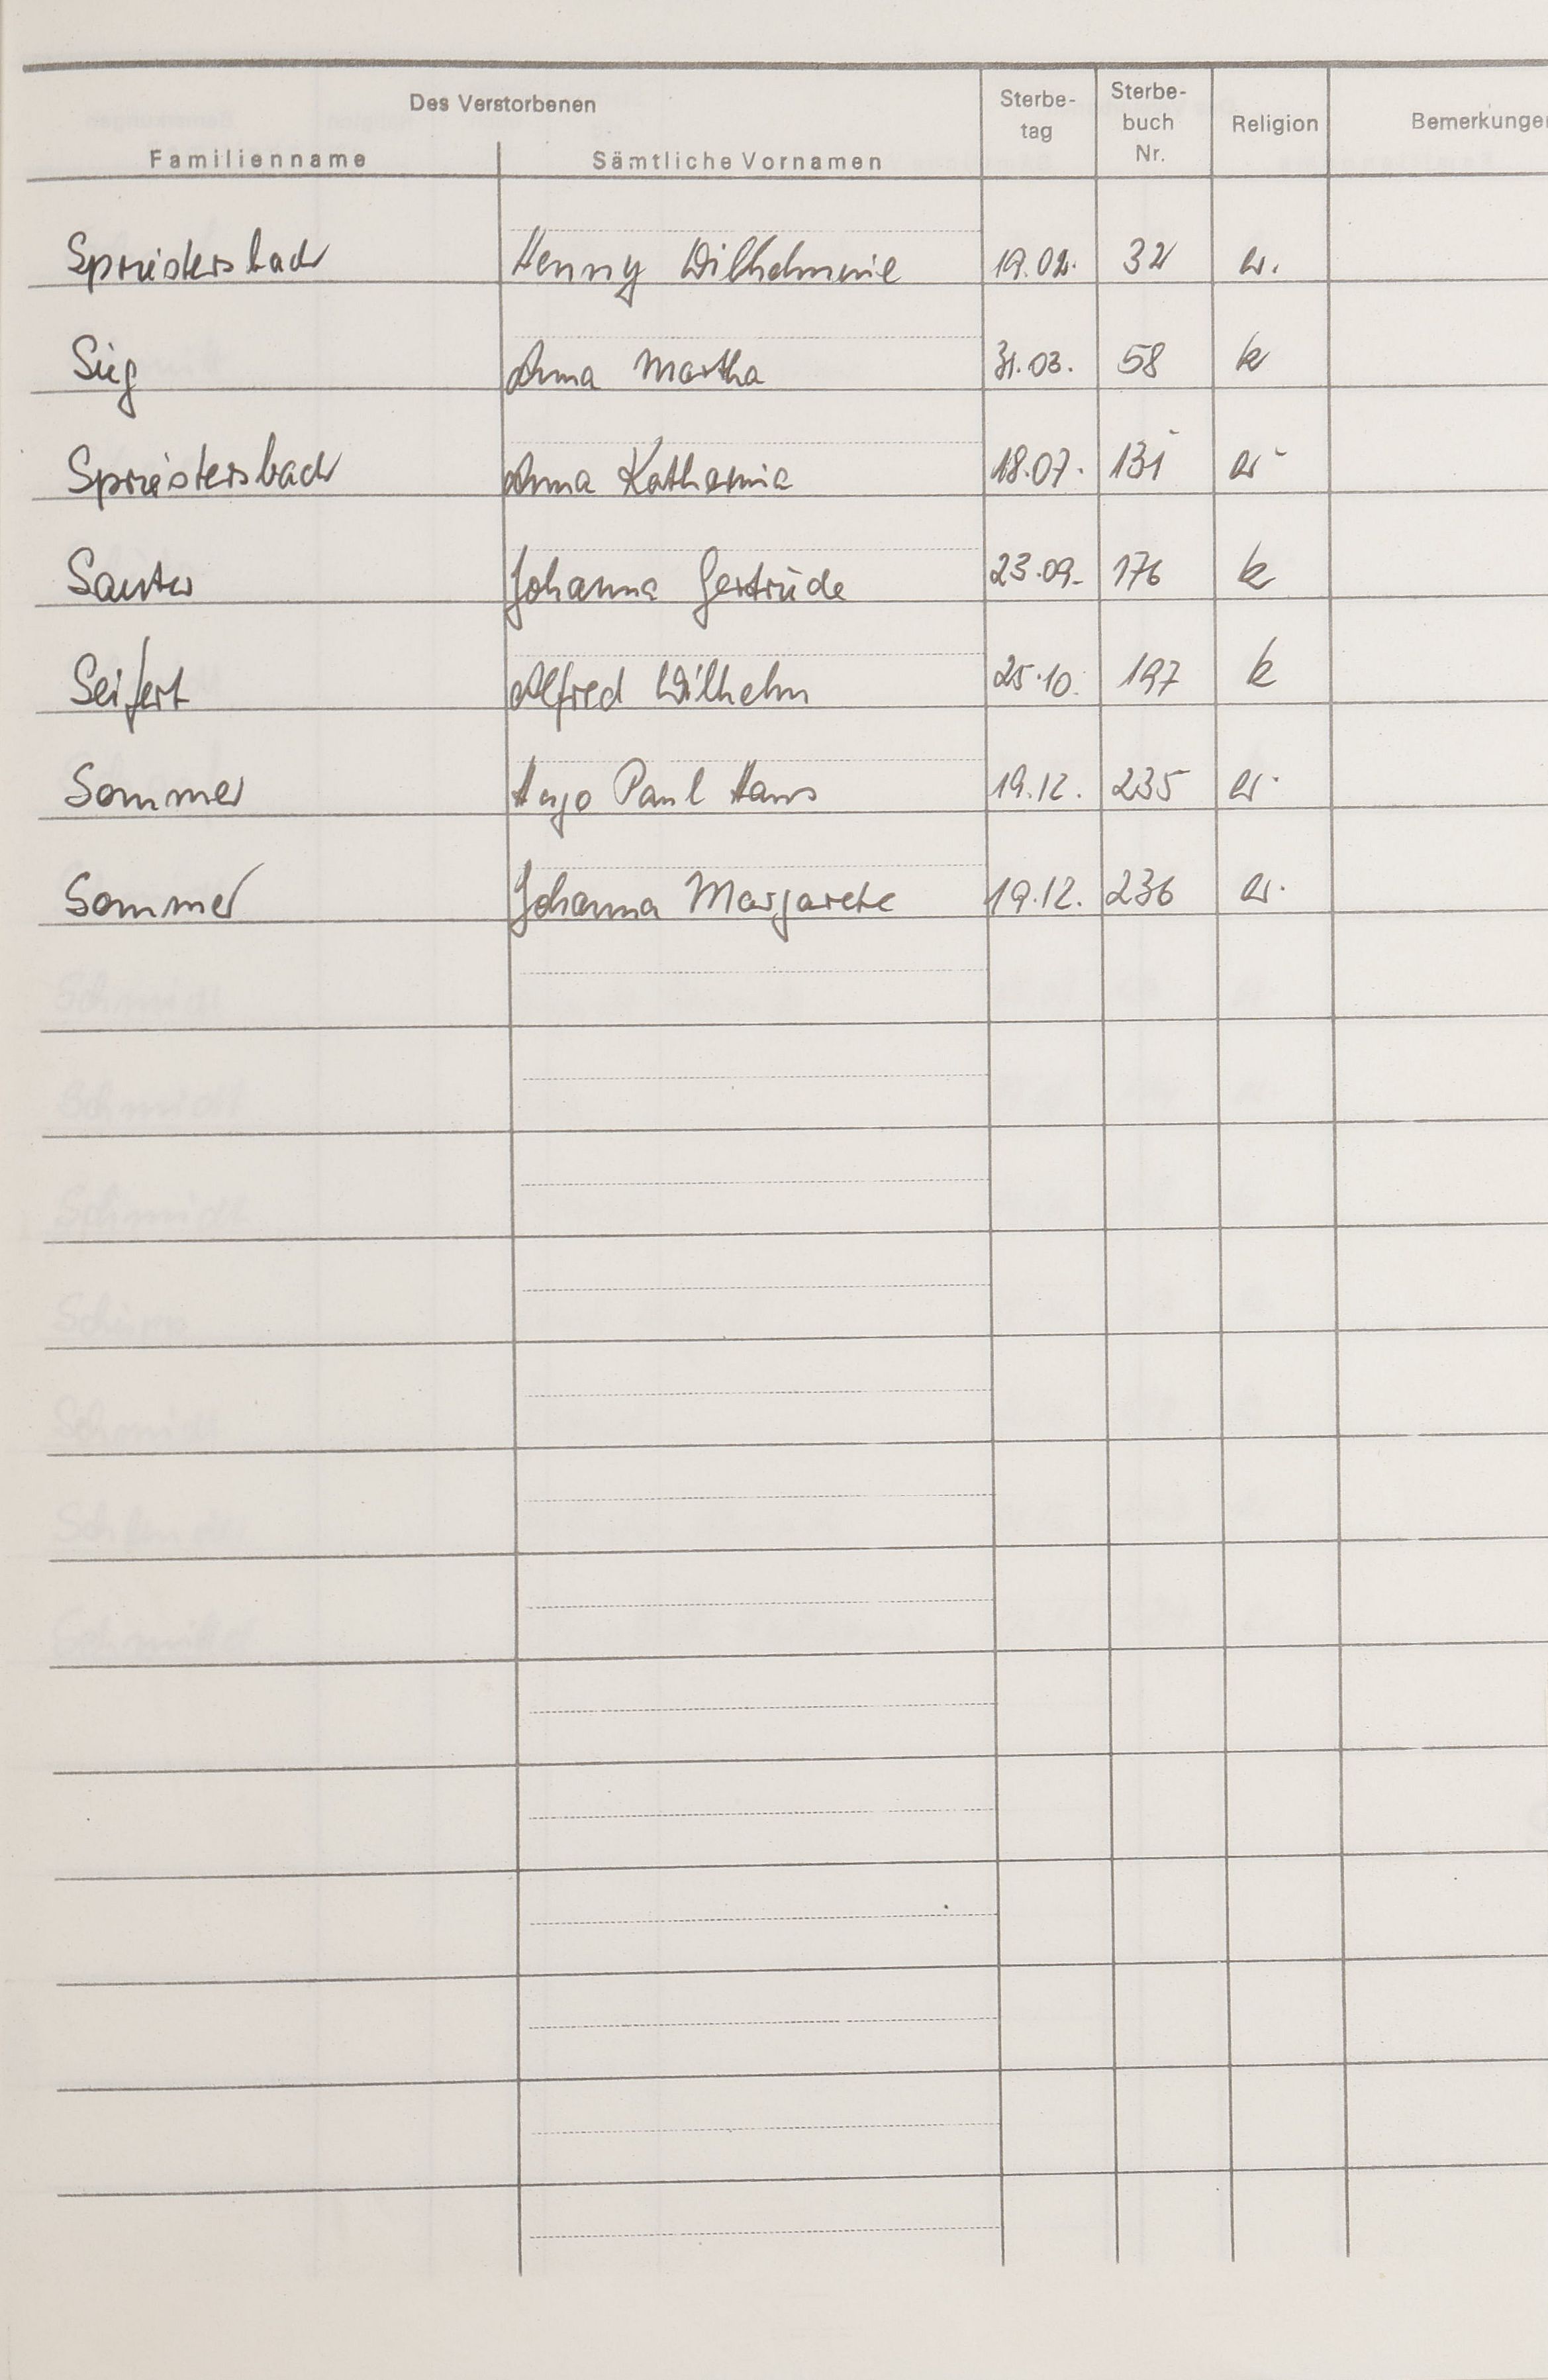 Des Verstorbenen
Familienname Sämtliche Vornamen Sterbe-tag Sterbe-buch Nr. Religion Bemerkungen
Spriestersbach Henny Wilhelmine 19.02. 32 ev.
Sieg Anna Martha 31.03. 58 k
Spriestersbach Anna Katharina 18.07. 131 ev.
Sauter Johanna Gertrude 23.09. 176 k
Seifert Alfred Wilhelm 25.10. 197 k
Sommer Hugo Paul Hans 19.12. 235 ev.
Sommer Johanna Margarete 19.12. 236 ev.